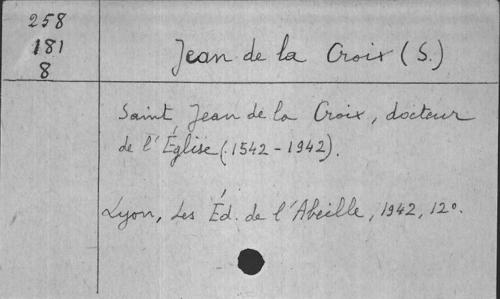 258
181
8
Jean de la Croix (S.)
Saint Jean de la Croix, docteur
de l'Église (1542-1942).
Lyon, Les Éd. de l'Abeille, 1942, 12°.